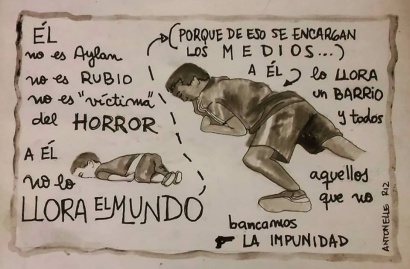 ÉL
no es Aylan
no es RUBIO
no es "víctima"
del HORROR
A ÉL
no lo
LLORA EL MUNDO
(PORQUE DE ESO SE ENCARGAN
LOS MEDIOS...)
A ÉL lo LLORA
un BARRIO
y todos
aquellos
que no
bancamos
LA IMPUNIDAD
ANTONELLA RIZ